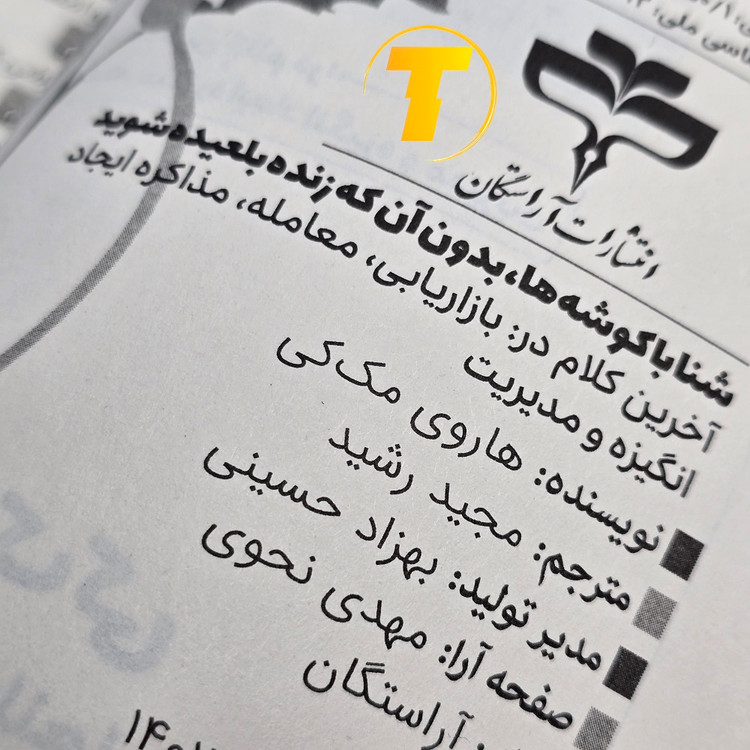 T
انتشارات آراستگان
شنا با کوسه‌ها، بدون آن که زنده بلعیده شوید
آخرین کلام در: بازاریابی، معامله، مذاکره ایجاد
انگیزه و مدیریت
نویسنده: هاروی مک‌کی
مترجم: مجید رشید
مدیر تولید: بهزاد حسینی
صفحه آرا: مهدی نحوی
آراستگان